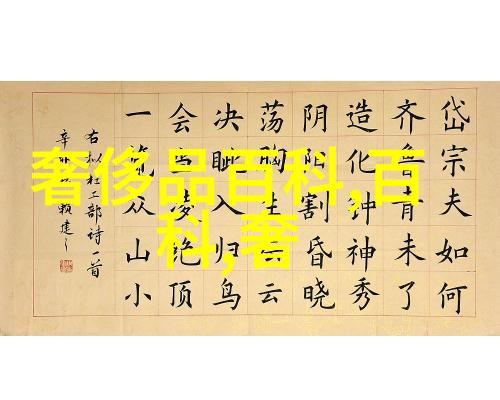 奢侈品百科,百
科,奢
岱宗夫如何
齐鲁青未了
造化钟神秀
阴阳割昏晓
荡胸生云
决眦入归鸟
会当凌绝顶
一览众山小
右拟杜工部诗一首
辛赖建